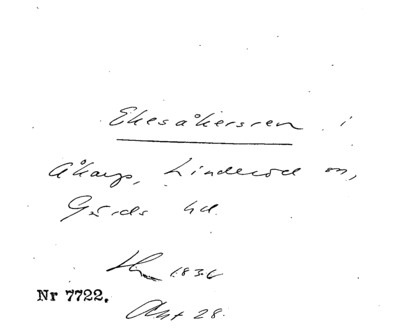 Ekesåkersren i
Åkarp, Linderöd sn,
Gärds hd.
1836
Nr 7722.
Akt 28.